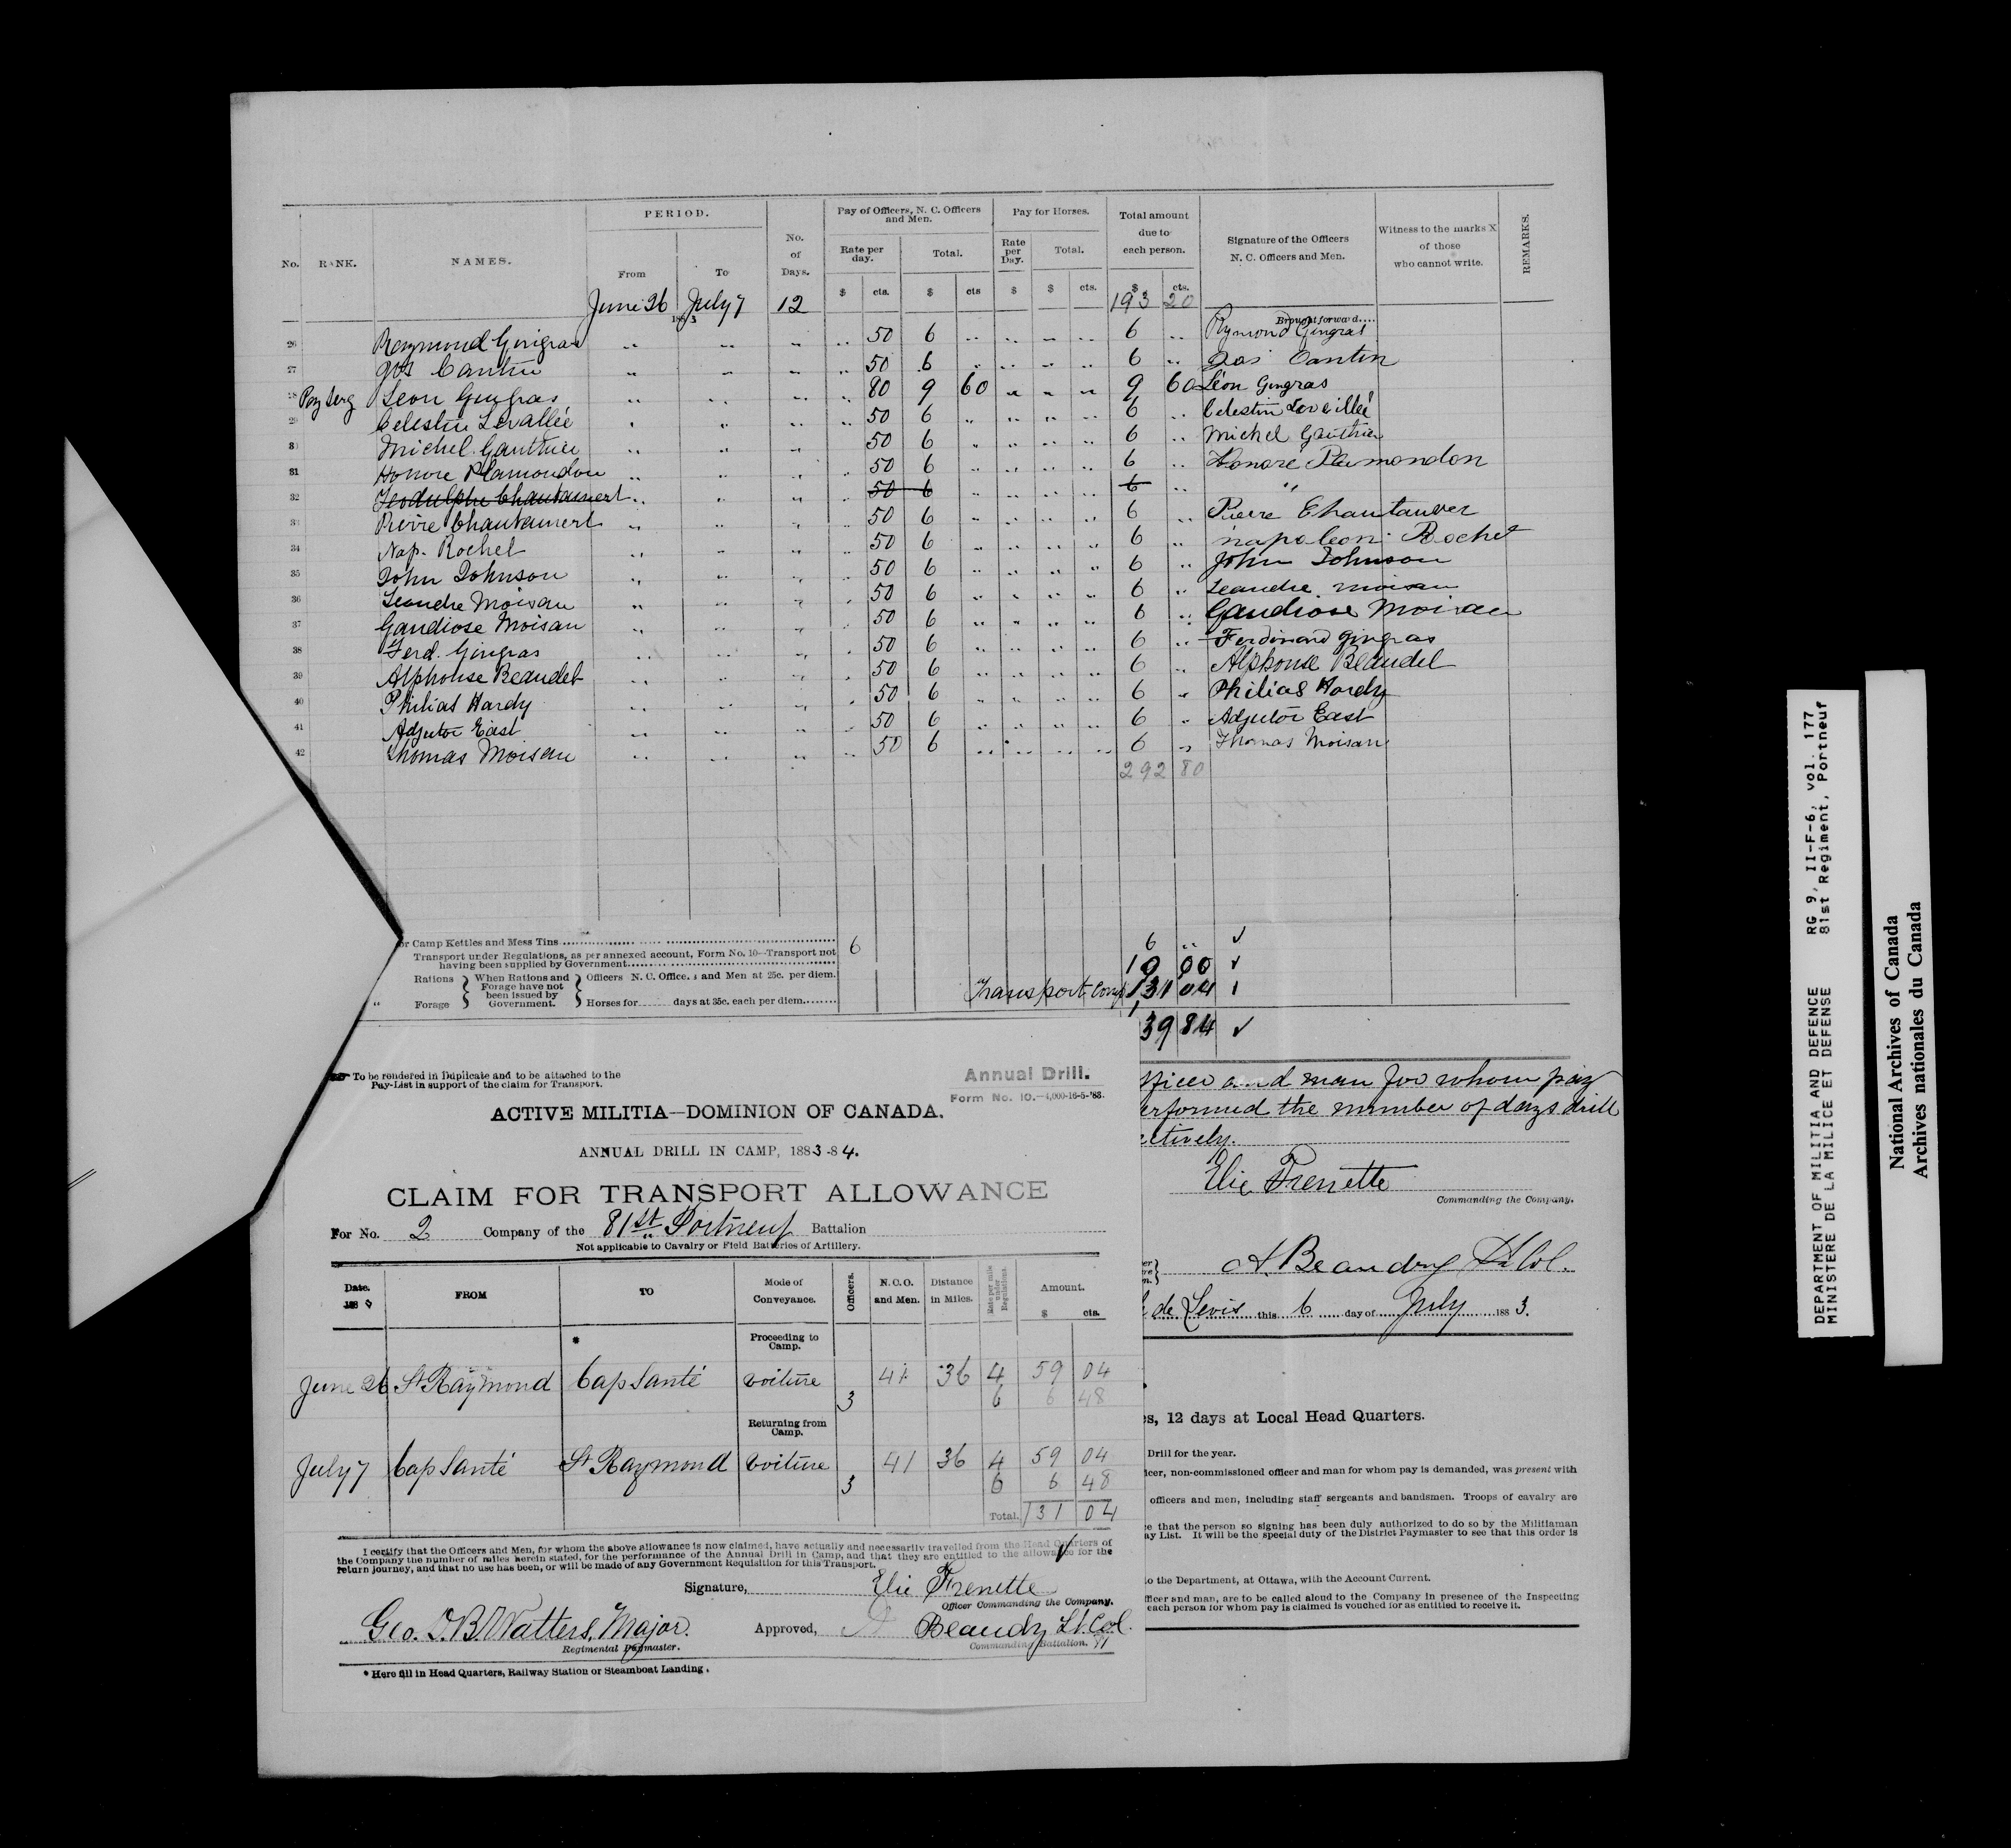 No. RANK. NAMES. PERIOD. No. of Days. Pay of Officers, N. C. Officers and Men. Pay for Horses. Total amount due to each person. Signature of the Officers N. C. Officers and Men. Witness to the marks X of those who cannot write. REMARKS.
From To Rate per day. Total. Rate per Day. Total.
$ cts. $ cts $ $ cts. $ cts.
June 26 July 7 12 193 20
1883 Brought forward....
26 Raymond Gingras .. .. .. .. 50 6 .. .. .. .. 6 .. Rymond Gingras
27 Jos Cantin .. .. .. .. 50 6 .. .. .. .. 6 .. Jos Cantin
28 Pay Serg Leon Gingras .. .. .. .. 80 9 60 .. .. .. 9 60 Léon Gingras
29 Celestin Levallée .. .. .. .. 50 6 .. .. .. .. 6 .. Celestin Leveillé
30 Michel Gauthier .. .. .. 50 6 .. .. .. .. 6 .. Michel Gauthier
31 Honore Plamondon .. .. .. .. 50 6 .. .. .. .. 6 .. Honoré Plamondon
32 Teodulphe Chantauvert .. .. .. .. 50 6 .. .. .. .. 6 .. "
33 Pierre Chantauvert .. .. .. .. 50 6 .. .. .. .. 6 .. Pierre Chantauver
34 Nap. Rochet .. .. .. .. 50 6 .. .. .. .. 6 .. napoleon Rochet
35 John Johnson .. .. .. .. 50 6 .. .. .. .. 6 .. John Johnson
36 Leandre Moisan .. .. .. .. 50 6 .. .. .. .. 6 .. Leandre moisan
37 Gaudiose Moisan .. .. .. .. 50 6 .. .. .. .. 6 .. Gaudiose Moisan
38 Ferd. Gingras .. .. .. .. 50 6 .. .. .. .. 6 .. Ferdinand gingras
39 Alphonse Beaudet .. .. .. .. 50 6 .. .. .. .. 6 .. Alphonse Beaudet
40 Philias Hardy .. .. .. .. 50 6 .. .. .. .. 6 .. Philias Hardy
41 Adjutor East .. .. .. .. 50 6 .. .. .. .. 6 .. Adjutor East
42 Thomas Moisan .. .. .. .. 50 6 .. .. .. .. 6 .. Thomas Moisan
292 80
or Camp Kettles and Mess Tins 6 6 .. ✓
Transport under Regulations, as per annexed account, Form No. 10—Transport not
having been supplied by Government 10 00 ✓
Rations } When Rations and Forage have not been issued by Government. { Officers N. C. Officers and Men at 25c. per diem.
" Forage Horses for days at 35c. each per diem
Transport 131 04
39 84 ✓
fficer and man for whom pay
erformed the number of days drill
ctively.
Elie Frenette
Commanding the Company.
A. Beaudry Lt Col.
de Levis this 6 day of July 1883.
s, 12 days at Local Head Quarters.
Drill for the year.
icer, non-commissioned officer and man for whom pay is demanded, was present with
officers and men, including staff sergeants and bandsmen. Troops of cavalry are
e that the person so signing has been duly authorized to do so by the Militiaman
ay List. It will be the special duty of the District Paymaster to see that this order is
o the Department, at Ottawa, with the Account Current.
fficer and man, are to be called aloud to the Company in presence of the Inspecting
each person for whom pay is claimed is vouched for as entitled to receive it.
To be rendered in Duplicate and to be attached to the
Pay-List in support of the claim for Transport.
Annual Drill.
Form No. 10.—4,000-16-5-'83.
ACTIVE MILITIA—DOMINION OF CANADA.
ANNUAL DRILL IN CAMP, 1883-84.
CLAIM FOR TRANSPORT ALLOWANCE
For No. 2 Company of the 81st Portneuf Battalion
Not applicable to Cavalry or Field Batteries of Artillery.
Date. 188 FROM TO Mode of Conveyance. Officers. N.C.O. and Men. Distance in Miles. Rate per mile under Regulations. Amount.
$ cts.
* Proceeding to Camp.
June 26 St Raymond Cap Santé voiture 41 36 4 59 04
3 6 6 48
Returning from Camp.
July 7 Cap Santé St Raymond voiture 41 36 4 59 04
3 6 6 48
Total. 131 04
I certify that the Officers and Men, for whom the above allowance is now claimed, have actually and necessarily travelled from the Head Quarters of
the Company the number of miles herein stated, for the performance of the Annual Drill in Camp, and that they are entitled to the allowance for the
return journey, and that no use has been, or will be made of any Government Requisition for this Transport.
Signature, Elie Frenette
Officer Commanding the Company.
Geo. I. B. Watters, Major. Approved, A Beaudry Lt. Col.
Regimental Paymaster. Commanding Battalion. 81
* Here fill in Head Quarters, Railway Station or Steamboat Landing.
DEPARTMENT OF MILITIA AND DEFENCE RG 9, II-F-6, vol. 177
MINISTERE DE LA MILICE ET DEFENSE 81st Regiment, Portneuf
National Archives of Canada
Archives nationales du Canada